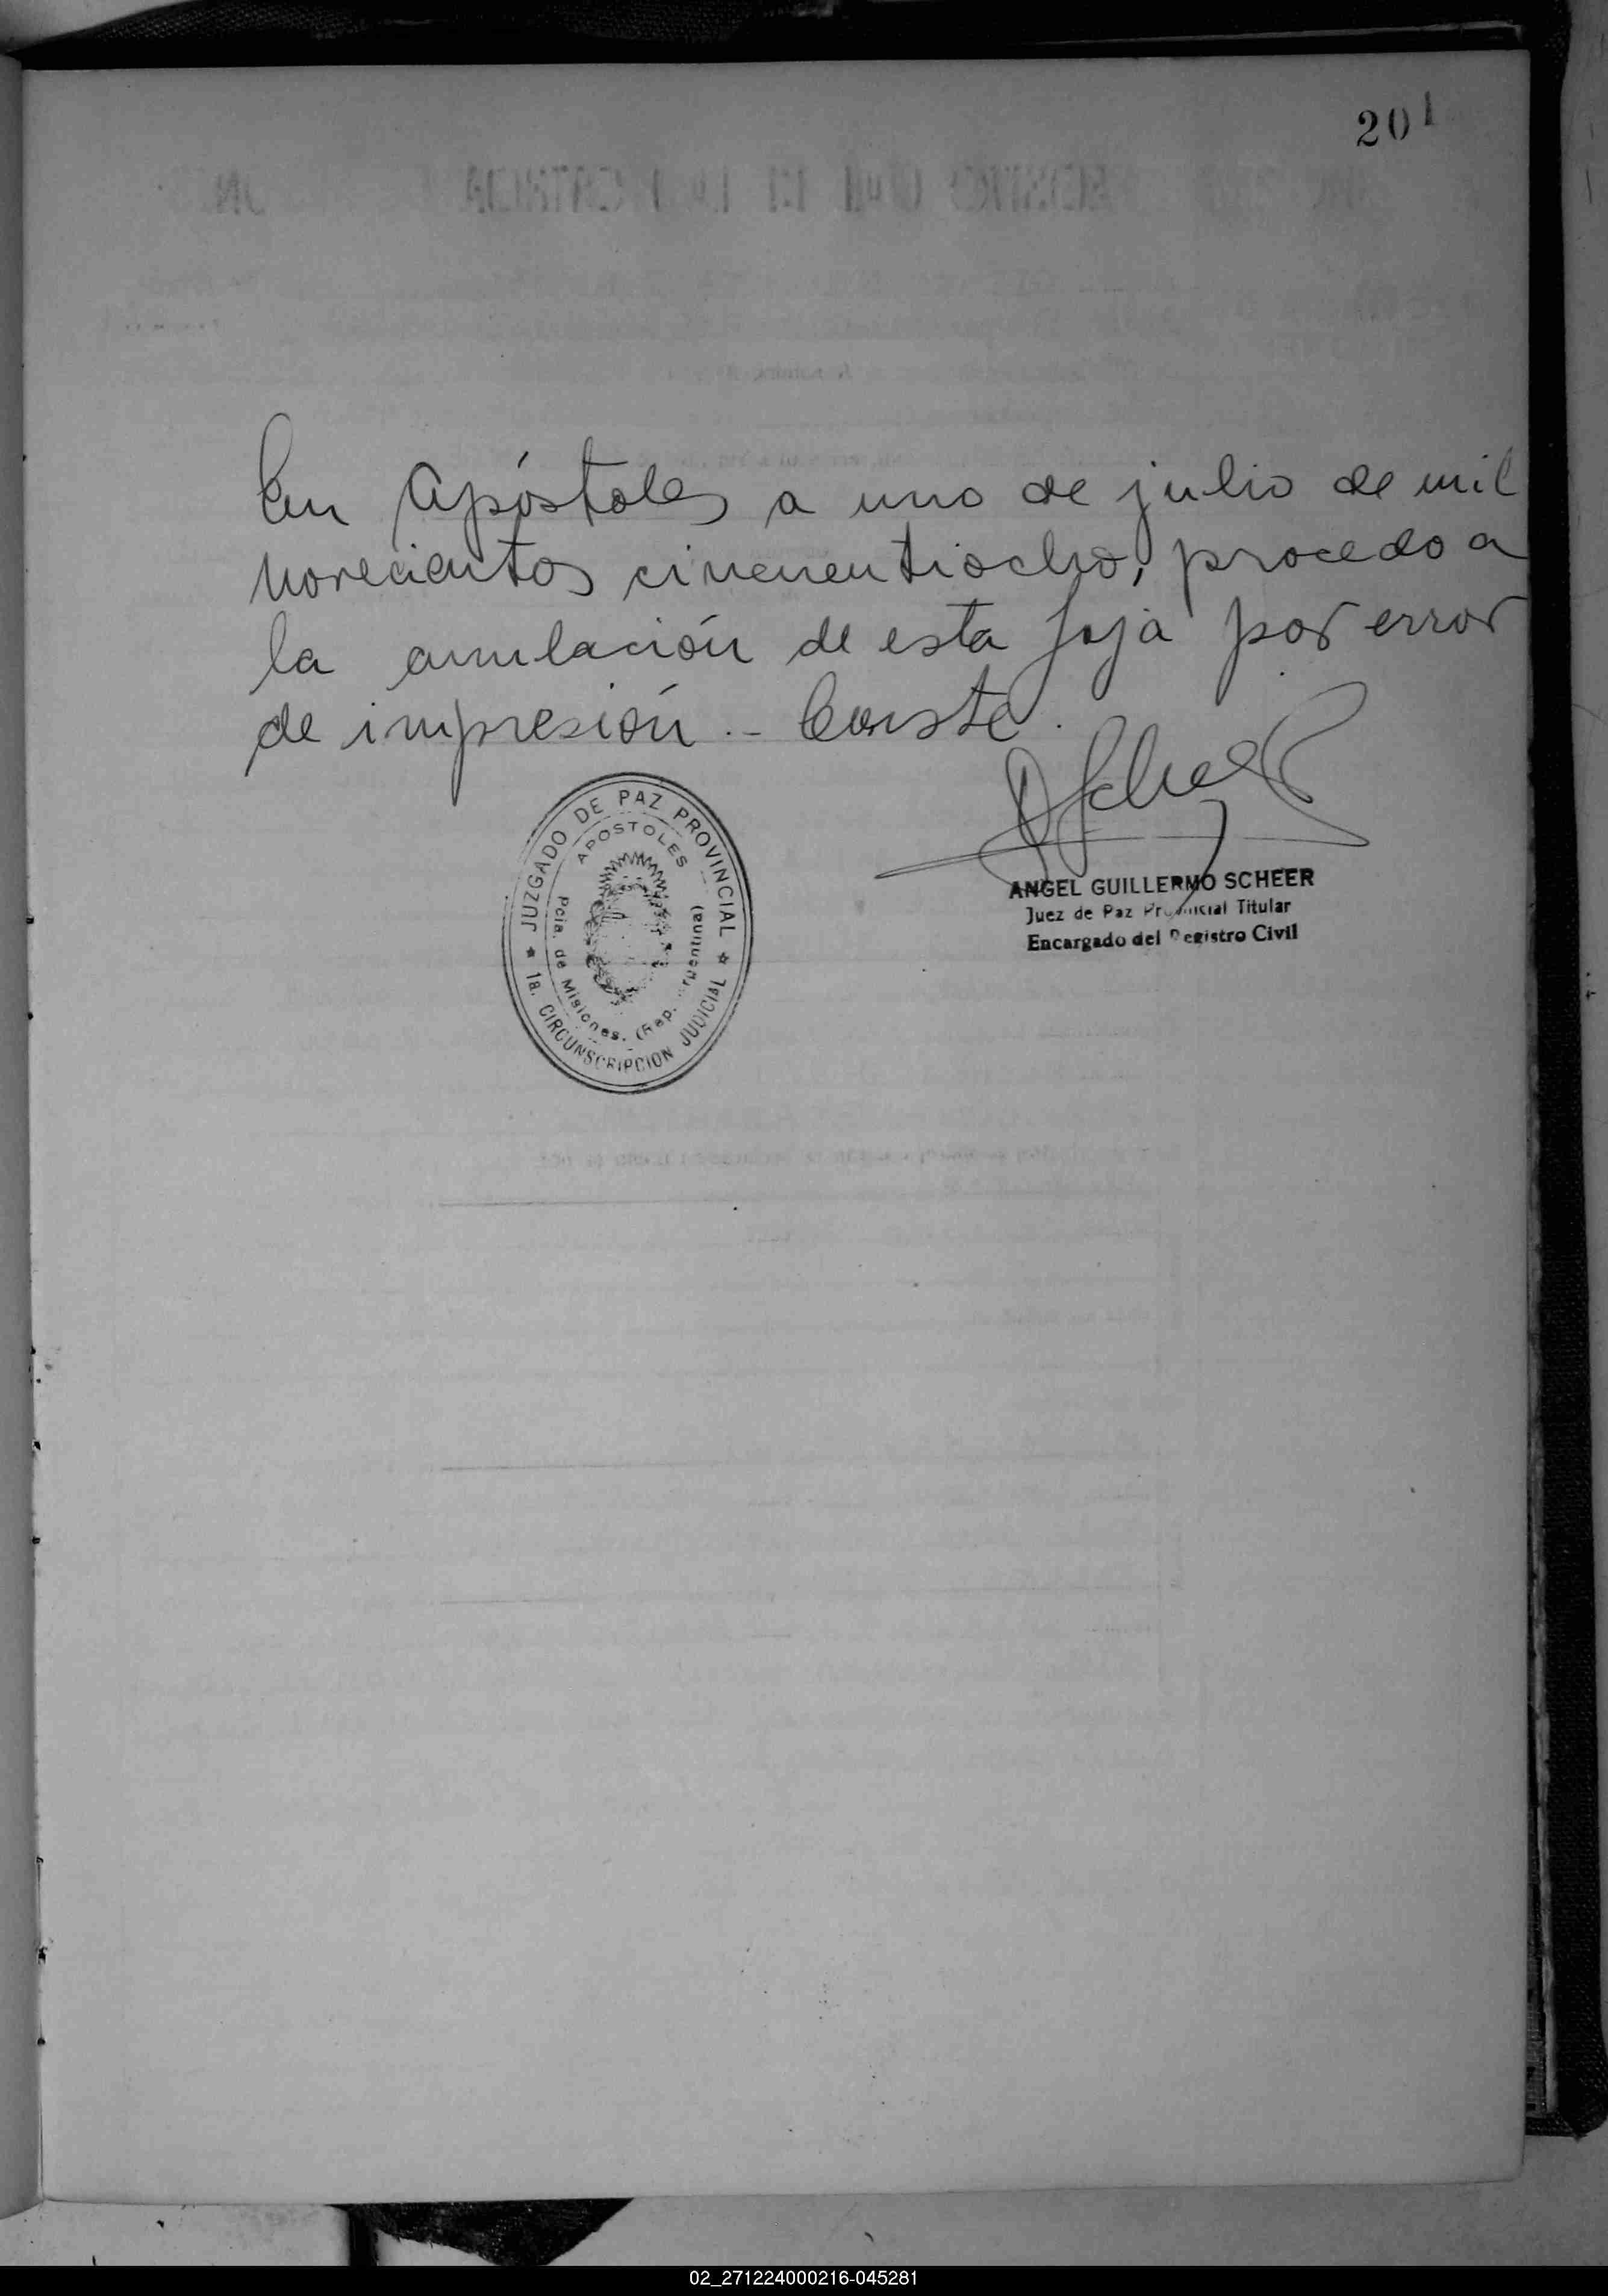 201
En Apóstoles a uno de julio de mil
novecientos cincuentiocho, procedo a
la anulación de esta foja por error
de impresión.- Conste.
JUZGADO DE PAZ PROVINCIAL
APOSTOLES
Pcia. de Misiones. (Rep. Argentina)
1a. CIRCUNSCRIPCION JUDICIAL
ANGEL GUILLERMO SCHEER
Juez de Paz Provincial Titular
Encargado del Registro Civil
02_271224000216-045281